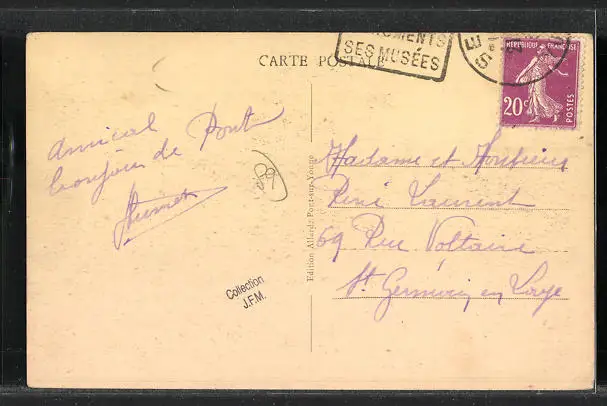 MONUMENTS
SES MUSÉES
CARTE POSTALE
RÉPUBLIQUE FRANÇAISE
20c
POSTES
Amical
bonjour de Pont
Madame et Monsieur
René Laurent
69 Rue Voltaire
St Germain en Laye
Edition Allard, Pont-sur-Yonne
Collection
J.F.M.